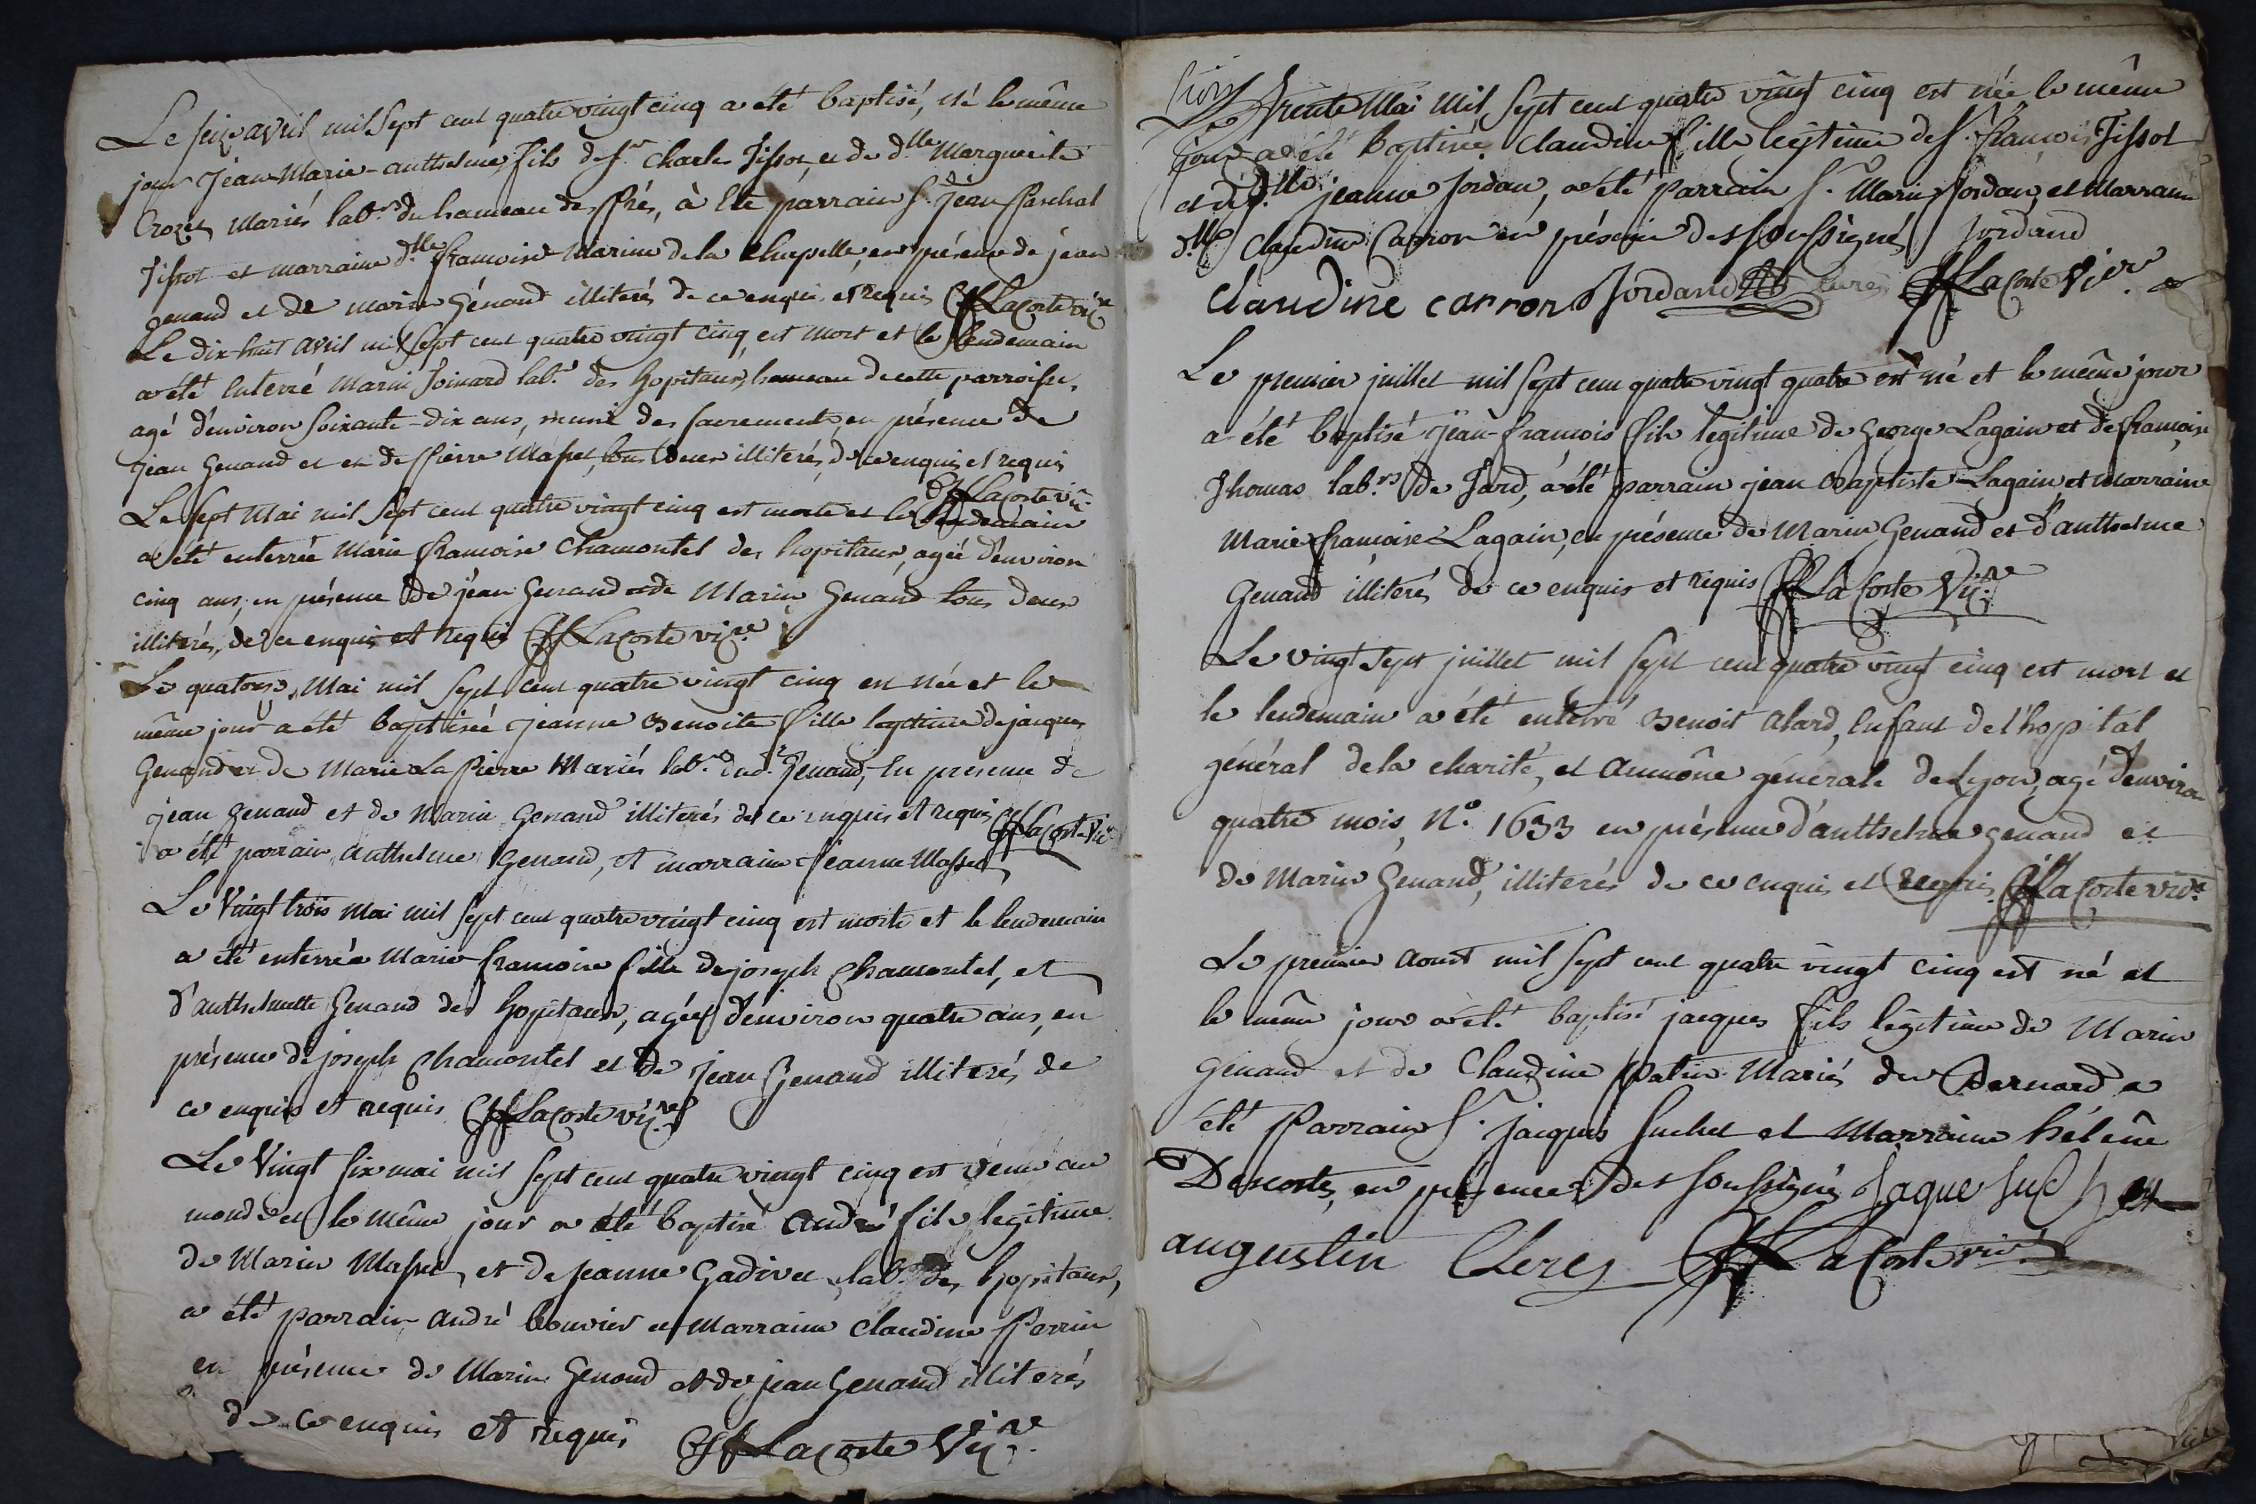 Le seize avril mil sept cent quatre vingt cinq a été baptisé, né le même
jour Jean-Marie-anthelme fils de sr charles Tissot, et de dlle Marguerite
Crozet Mariés labrs du hameau des Prés, à été parrain sr jean Paschal
Tissot et marraine dlle francoise Marine de la Chapelle, en présence de jean
genand et de marin Génand illiterés de ce enquis et requis Lacoste vicre
Le dix-huit avril mil sept cent quatre vingt cinq, est mort et le lendemain
a été enterré Marin Soinard labr des hopitaux, hameau de cette parroisse,
agé d'environ soixante-dix ans, muni des sacrements en présence de
jean Genand et en de Pierre Masset, tous deux illiterés, de ce enquis et requis
Lacoste vic
Le sept Mai mil sept cent quatre vingt cinq est morte et le lendemain
a été enterrée Marie francoise Chamontel des hopitaux, agée d'environ
cinq ans, en présence de jean Genand et de Marin Genand tous deux
illiterés, de ce enquis et requis Lacoste vicre
Le quatorze, Mai mil sept cent quatre vingt cinq est née et le
même jour a été baptisée jeanne Benoite fille legitime de jacques
Genand et de Marie La Pierre Mariés labrs dud. Genand, en presence de
jean genand et de Marin Genand illiterés de ce enquis et requis Lacoste Vic
a été parrain, anthelme Genand, et marraine jeanne Masset
Le Vingt trois Mai mil sept cent quatre vingt cinq est morte et le lendemain
a été enterrée Marie francoise fille de joseph Chamontel, et
d'anthelmette Genand des hopitaux, agée d'environ quatre ans, en
présence de joseph Chamontel et de jean Genand illiterés de
ce enquis et requis Lacoste vicre
Le Vingt six mai mil sept cent quatre vingt cinq est venu au
monde et le même jour a été baptisé andré fils legitime
de Marin Masset, et de jeanne Gadivet, labrs des hopitaux,
a été parrain andré bouvier et Marraine claudine Perrin
en présence de Marin Genand et de jean Genand illiterés
de ce enquis et requis Lacoste Vicre
Le trente Mai Mil sept cent quatre vingt cinq est née le même
jour a été baptisée Claudine fille legitime de sr francois Tissot
et de dlle jeanne Jordan, a été parrain sr Marin Jordan, et Marraine
dlle Claudine Carron en présence des soussignés Jordand
Claudine carron Jordand curé Lacoste Vicre
Le premier juillet mil sept cent quatre vingt quatre est né et le même jour
a été baptisé jean-francois fils legitime de George Lagain et de francoise
Thomas labrs de Jard, a été parrain jean Baptiste Lagain et marraine
Marie francoise Lagain, en présence de Marin Genand et d'anthelme
Genand illiterés de ce enquis et requis La Coste Vicre
Le vingt sept juillet mil sept cent quatre vingt cinq est mort et
le lendemain a été enterré Benoit alard, Enfant de l'hopital
général de la charité, et aumône générale de Lyon, agé d'environ
quatre mois, No. 1633 en présence d'anthelme genand et
de Marin Genand, illiterés de ce enquis et requis Lacoste vicre
Le premier aoust mil sept cent quatre vingt cinq est né et
le même jour a été baptisé jacques fils légitime de Marin
Genand et de Claudine Patin Mariés du Bernard a
été Parrain sr jacques suchet et Marraine hélène
Descostes, en présence des soussignés Jaque suchet
augustin Clerc La Coste vicre